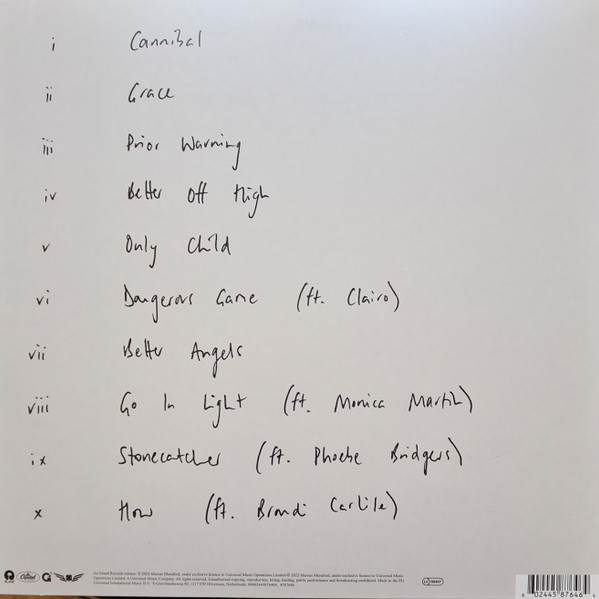 i Cannibal
ii Grace
iii Prior Warning
iv Better Off High
v Only Child
vi Dangerous Game (ft. Clairo)
vii Better Angels
viii Go In Light (ft. Monica Martin)
ix Stonecatcher (ft. Phoebe Bridgers)
x How (ft. Brandi Carlile)
Capitol
02445 87646